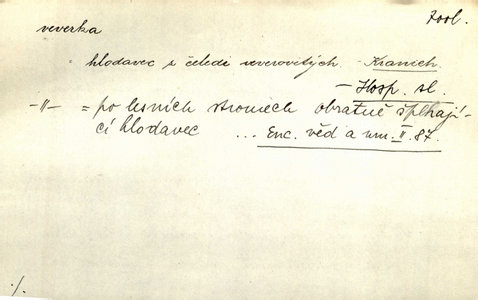 zool.
veverka
= hlodavec z čeledi veverovitých. Kranich.
— Hosp. sl.
–"– = po lesních stromech obratně šplhají-
cí hlodavec ... Enc. věd a um. II. 87.
./.